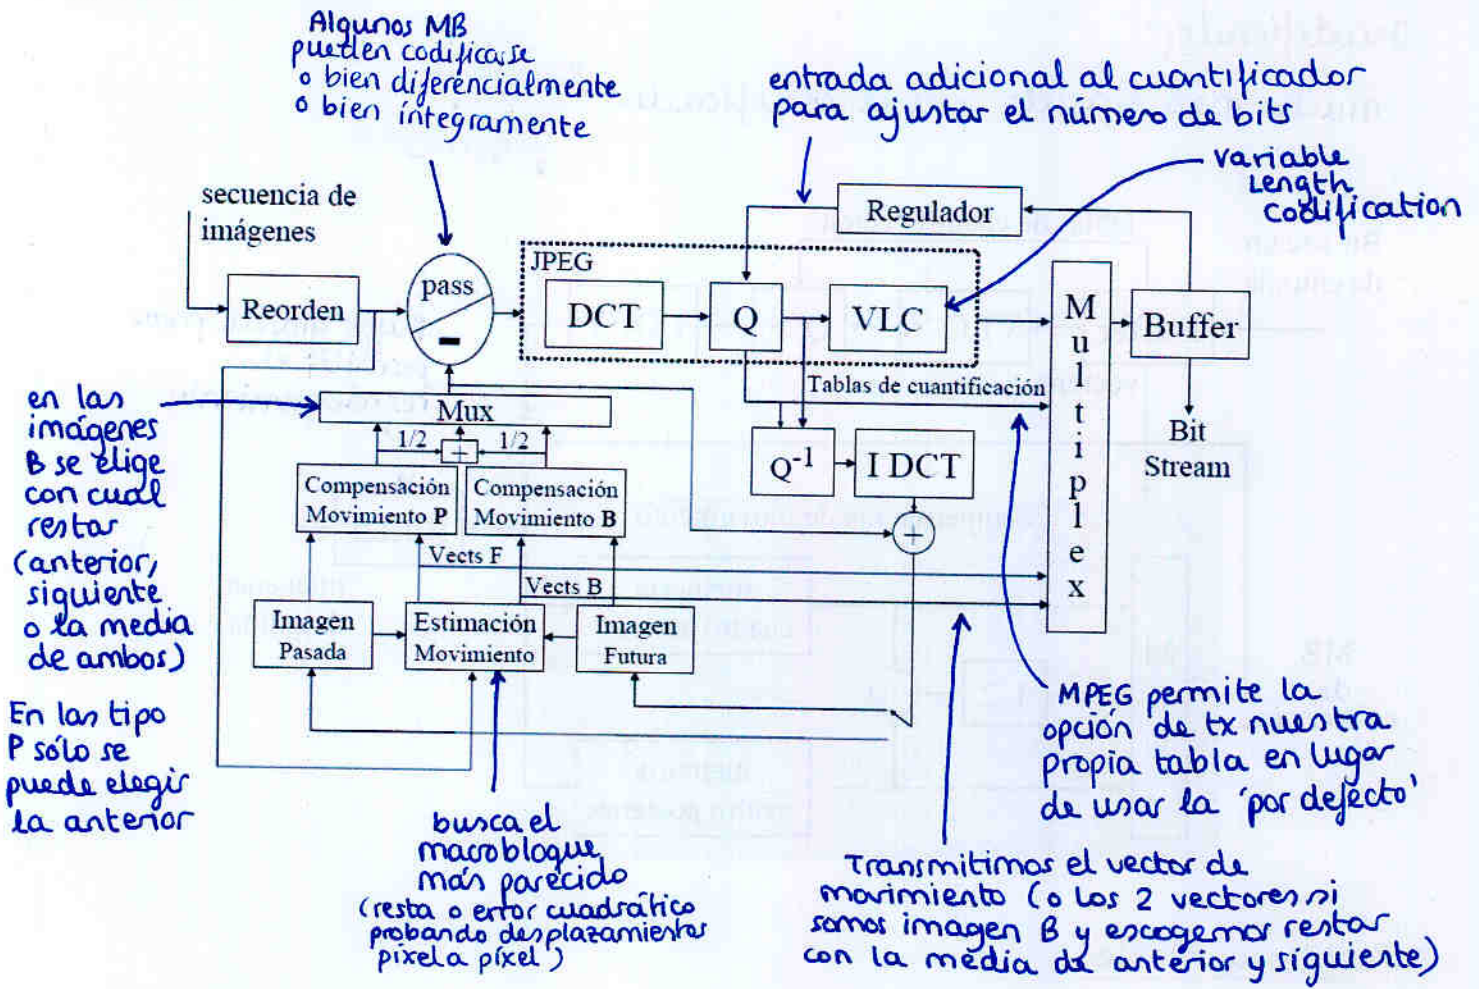 Algunos MB
pueden codificarse
o bien diferencialmente
o bien íntegramente
entrada adicional al cuantificador
para ajustar el número de bits
variable
Length
codification
secuencia de
imágenes
Reorden
pass
-
JPEG
DCT
Q
VLC
Regulador
Multiplex
Buffer
Bit
Stream
Tablas de cuantificación
Q-1
I DCT
+
en las
imágenes
B se elige
con cual
restar
(anterior,
siguiente
o la media
de ambos)
Mux
1/2
+
1/2
Compensación
Movimiento P
Compensación
Movimiento B
Vects F
Vects B
Imagen
Pasada
Estimación
Movimiento
Imagen
Futura
En las tipo
P sólo se
puede elegir
la anterior
busca el
macrobloque
más parecido
(resta o error cuadrático
probando desplazamientos
pixel a píxel)
MPEG permite la
opción de tx nuestra
propia tabla en lugar
de usar la 'por defecto'
Transmitimos el vector de
movimiento (o los 2 vectores si
somos imagen B y escogemos restar
con la media de anterior y siguiente)